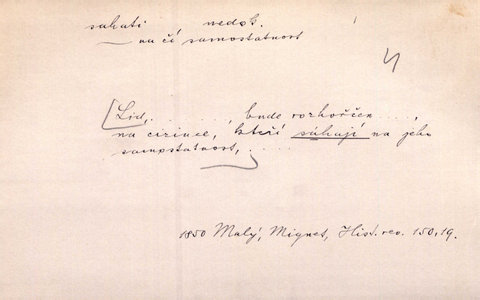 sahati nedok.
na čí samostatnost
Lid, . . . . . . , bude rozhořčen . . . . ,
na cizince, kteří sáhají na jeho
samostatnost, . . . .
1850 Malý, Mignet, Hist. rev. 150,19.